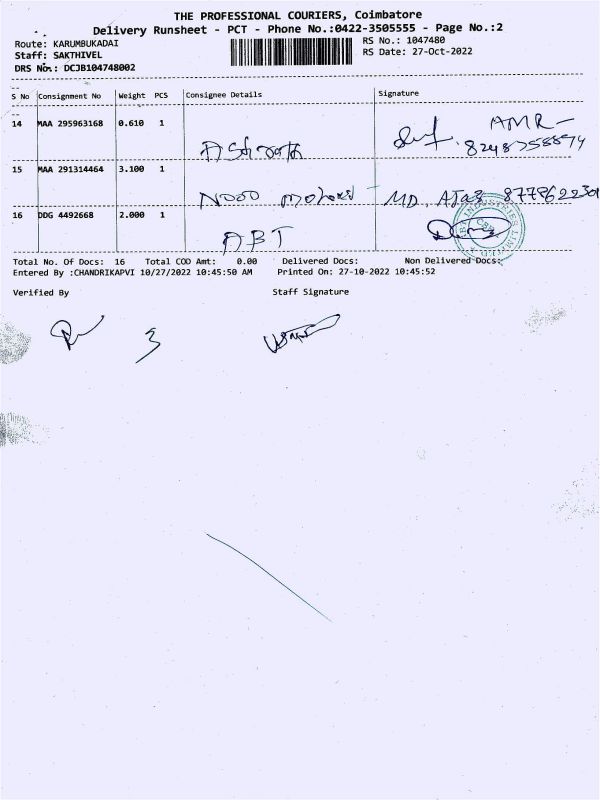 THE PROFESSIONAL COURIERS, Coimbatore
Delivery Runsheet - PCT - Phone No.:0422-3505555 - Page No.:2
Route: KARUMBUKADAI
RS No.: 1047480
Staff: SAKTHIVEL
RS Date: 27-Oct-2022
DRS No.: DCJB104748002
S No Consignment No Weight PCS Consignee Details Signature
14 MAA 295963168 0.610 1 AMR
15 MAA 291314464 3.100 1 MD. AJaz
16 DDG 4492668 2.000 1 ABT
Total No. Of Docs: 16 Total COD Amt: 0.00 Delivered Docs: Non Delivered Docs:
Entered By :CHANDRIKAPVI 10/27/2022 10:45:50 AM Printed On: 27-10-2022 10:45:52
Verified By Staff Signature